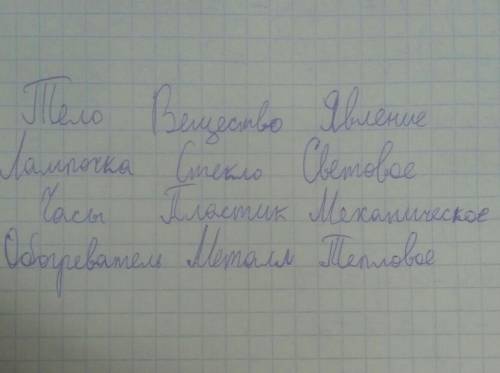 Тело Вещество Явление
Лампочка Стекло Световое
Часы Пластик Механическое
Обогреватель Металл Тепловое